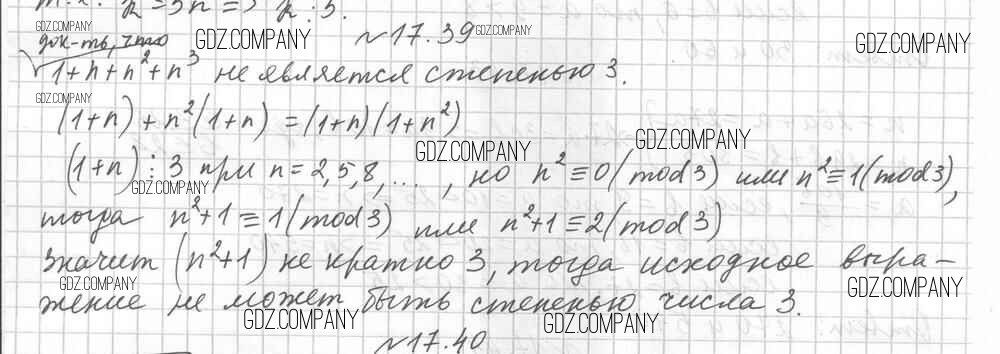 GDZ.COMPANY
док-ть, что GDZ.COMPANY №17.39 GDZ.COMPANY
GDZ.COMPANY
1+n+n²+n³ не является степенью 3.
GDZ.COMPANY
(1+n)+n²(1+n)=(1+n)(1+n²)
GDZ.COMPANY GDZ.COMPANY
(1+n)⋮3 при n=2,5,8,..., но n²≡0(mod3) или n²≡1(mod3),
GDZ.COMPANY
тогда n²+1≡1(mod3) или n²+1≡2(mod3)
значит (n²+1) не кратно 3, тогда исходное выра-
GDZ.COMPANY GDZ.COMPANY
жение не может быть степенью числа 3.
GDZ.COMPANY GDZ.COMPANY
№17.40